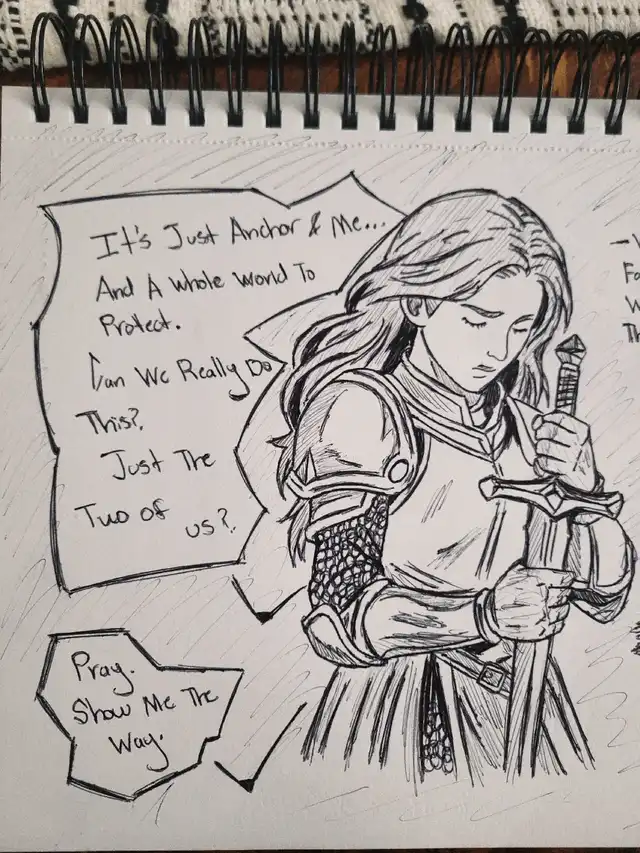 It's Just Anchor & Me...
And A Whole World To
Protect.
Can We Really Do
This?
Just The
Two of us?
Pray.
Show Me The
Way.